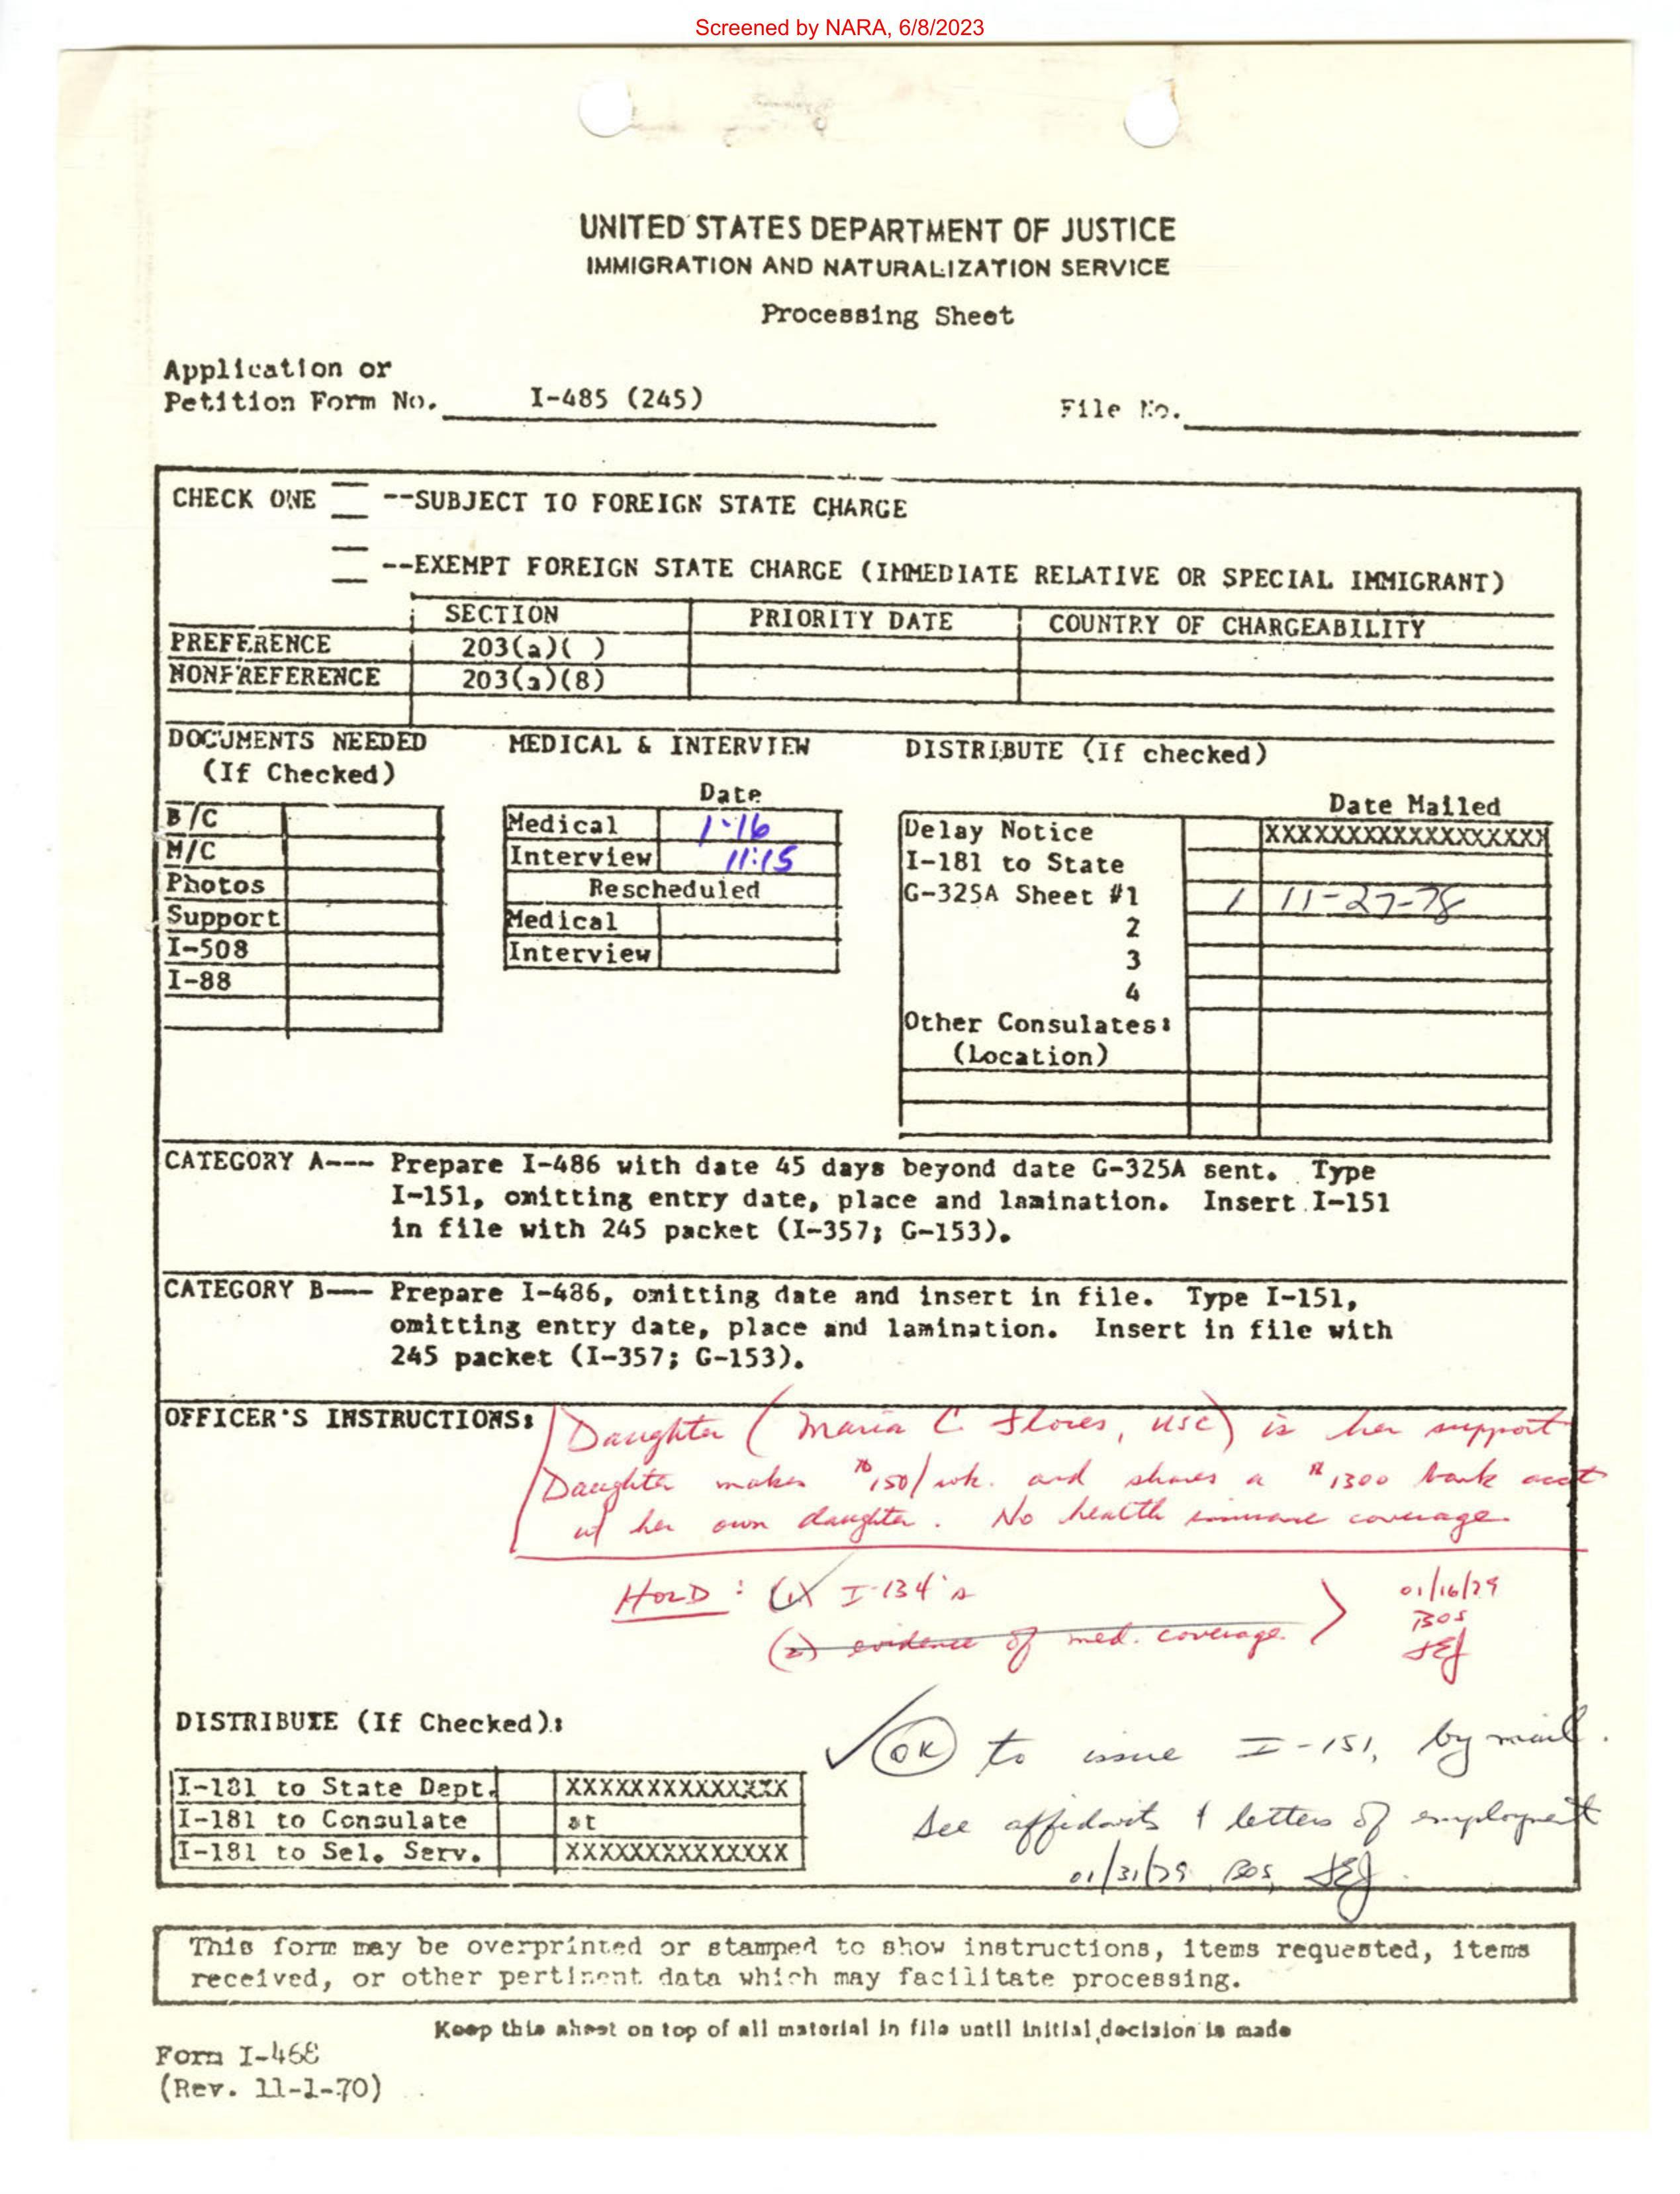 Screened by NARA, 6/8/2023
UNITED STATES DEPARTMENT OF JUSTICE
IMMIGRATION AND NATURALIZATION SERVICE
Processing Sheet
Application or
Petition Form No. I-485 (245)
File No.
CHECK ONE --SUBJECT TO FOREIGN STATE CHARGE
--EXEMPT FOREIGN STATE CHARGE (IMMEDIATE RELATIVE OR SPECIAL IMMIGRANT)
SECTION PRIORITY DATE COUNTRY OF CHARGEABILITY
PREFERENCE 203(a)( )
NONPREFERENCE 203(a)(8)
DOCUMENTS NEEDED
(If Checked)
B/C
M/C
Photos
Support
I-508
I-88
MEDICAL & INTERVIEW
Date
Medical 1-16
Interview 11:15
Rescheduled
Medical
Interview
DISTRIBUTE (If checked)
Date Mailed
Delay Notice XXXXXXXXXXXXXXXXXX
I-181 to State
G-325A Sheet #1 / 11-27-78
2
3
4
Other Consulates:
(Location)
CATEGORY A--- Prepare I-486 with date 45 days beyond date G-325A sent. Type
I-151, omitting entry date, place and lamination. Insert I-151
in file with 245 packet (I-357; G-153).
CATEGORY B--- Prepare I-486, omitting date and insert in file. Type I-151,
omitting entry date, place and lamination. Insert in file with
245 packet (I-357; G-153).
OFFICER'S INSTRUCTIONS: Daughter (Maria C. Flores, USC) is her support
Daughter makes $150/wk. and shares a $1300 bank acct
w/ her own daughter. No health insurance coverage.
HOLD: (1) I-134's
(2) evidence of med. coverage.
01/16/79
BOS
JEJ
DISTRIBUTE (If Checked):
I-181 to State Dept. XXXXXXXXXXXXXX
I-181 to Consulate at
I-181 to Sel. Serv. XXXXXXXXXXXXXX
OK to issue I-151, by mail.
See affidavits & letters of employment
01/31/79 BOS, JEJ
This form may be overprinted or stamped to show instructions, items requested, items
received, or other pertinent data which may facilitate processing.
Keep this sheet on top of all material in file until initial decision is made
Form I-468
(Rev. 11-1-70)